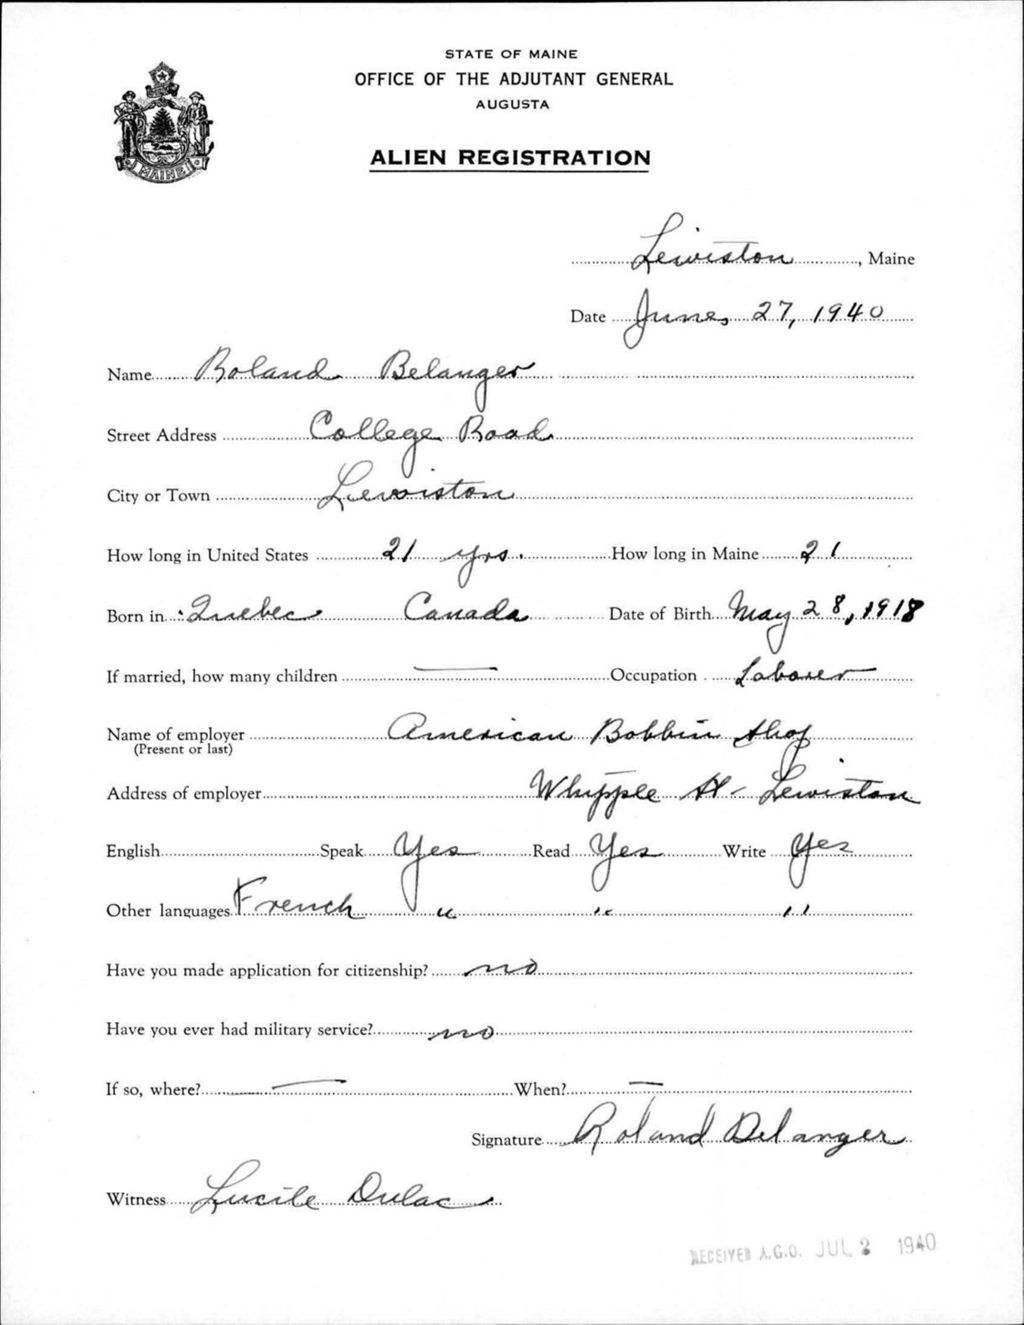 STATE OF MAINE
OFFICE OF THE ADJUTANT GENERAL
AUGUSTA
ALIEN REGISTRATION
MAINE
Lewiston, Maine
Date June, 27, 1940
Name Roland Belanger
Street Address College Road
City or Town Lewiston
How long in United States 21 yrs. How long in Maine 21
Born in Quebec Canada Date of Birth May 28, 1918
If married, how many children — Occupation Laborer
Name of employer American Bobbin Shop
(Present or last)
Address of employer Whipple St - Lewiston
English Speak Yes Read Yes Write Yes
Other languages French " " "
Have you made application for citizenship? no
Have you ever had military service? no
If so, where? — When? —
Signature Roland Belanger
Witness Lucile Dulac
RECEIVED A.G.O. JUL 2 1940